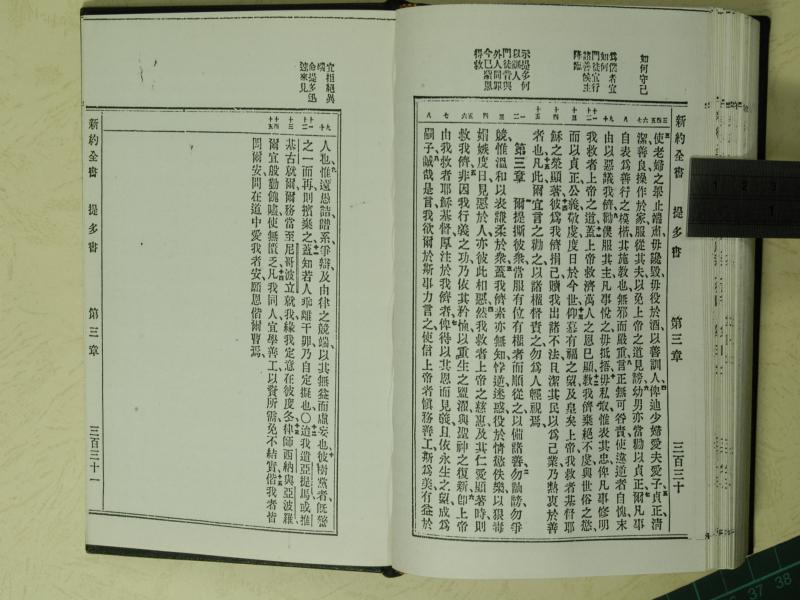 新約全書 提多書 第三章 三百三十
如何守己
爲僕者宜
如何
門徒宜行
諸善候主
降臨
示提多何
以訓人
門徒昔與
外人同罪
今已蒙恩
得救
使老婦之舉止禮肅毋讒毀毋役於酒以善訓人俾迪少婦愛夫愛子貞正清
潔善良操作於家服從其夫以免上帝之道見謗幼男亦當勸以貞正爾凡事
自表爲善行之模楷其施教也無邪而嚴重言正無可咎責使違道者自愧末
由以惡議我儕勸僕服其主凡事悅之毋抵捂毋私取惟表其忠俾凡事修明
我救者上帝之道蓋上帝救濟萬人之恩已顯教我儕棄絕不虔與世俗之慾
而以貞正公義敬虔度日於今世仰慕有福之望及皇矣上帝我救者基督耶
穌之榮顯著彼爲我儕捐己贖我出諸不法且潔其民以爲己業乃熱衷於善
者也凡此爾宜言之勸之以諸權督責之勿爲人輕視焉
第三章 爾提撕彼衆當服有位有權者而順從之以備諸善勿訕謗勿爭
競惟溫和以表謙柔於衆蓋我儕素亦無知悖逆迷惑役於情慾佚樂以狠毒
媢嫉度日見惡於人亦彼此相惡然我救者上帝之慈惠及其仁愛顯著時則
救我儕非因我行義之功乃依其矜恤以重生之盥濯與聖神之復新卽上帝
由我救者耶穌基督厚注於我儕者俾待以其恩而見義且依永生之望成爲
嗣子誠哉是言我欲爾於斯事力言之使信上帝者愼務善工斯爲美有益於
宜拒絕異
端
命提多迅
速來見
人也惟遠愚詰譜系爭辯及由律之競端以其無益而虛妄也彼樹黨者旣儆
之一而再則擯棄之蓋知若人乖離干卯乃自定擬也〇迨我遣亞提馬或推
基古就爾爾務當至尼哥波立就我緣我定意在彼度冬律師西納與亞波羅
爾宜殷勤餽贐使無匱乏凡我同人宜學善工以資所需免不結實偕我者皆
問爾安問在道中愛我者安願恩偕爾曹焉
新約全書 提多書 第三章 三百三十一